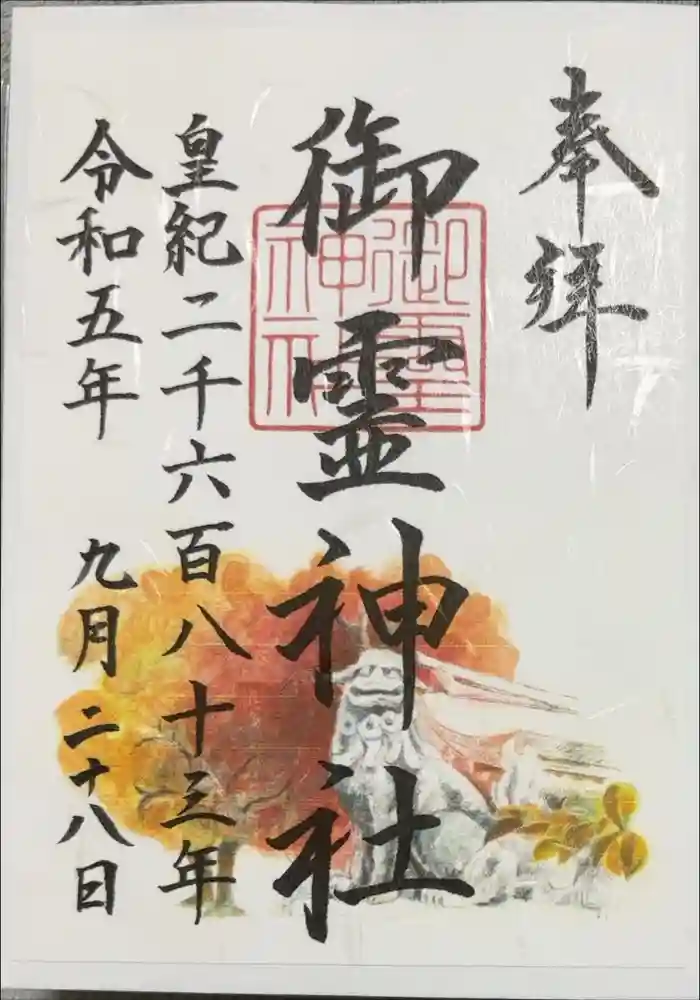 奉拝
御霊神社
御靈神社
皇紀二千六百八十三年
令和五年 九月二十八日